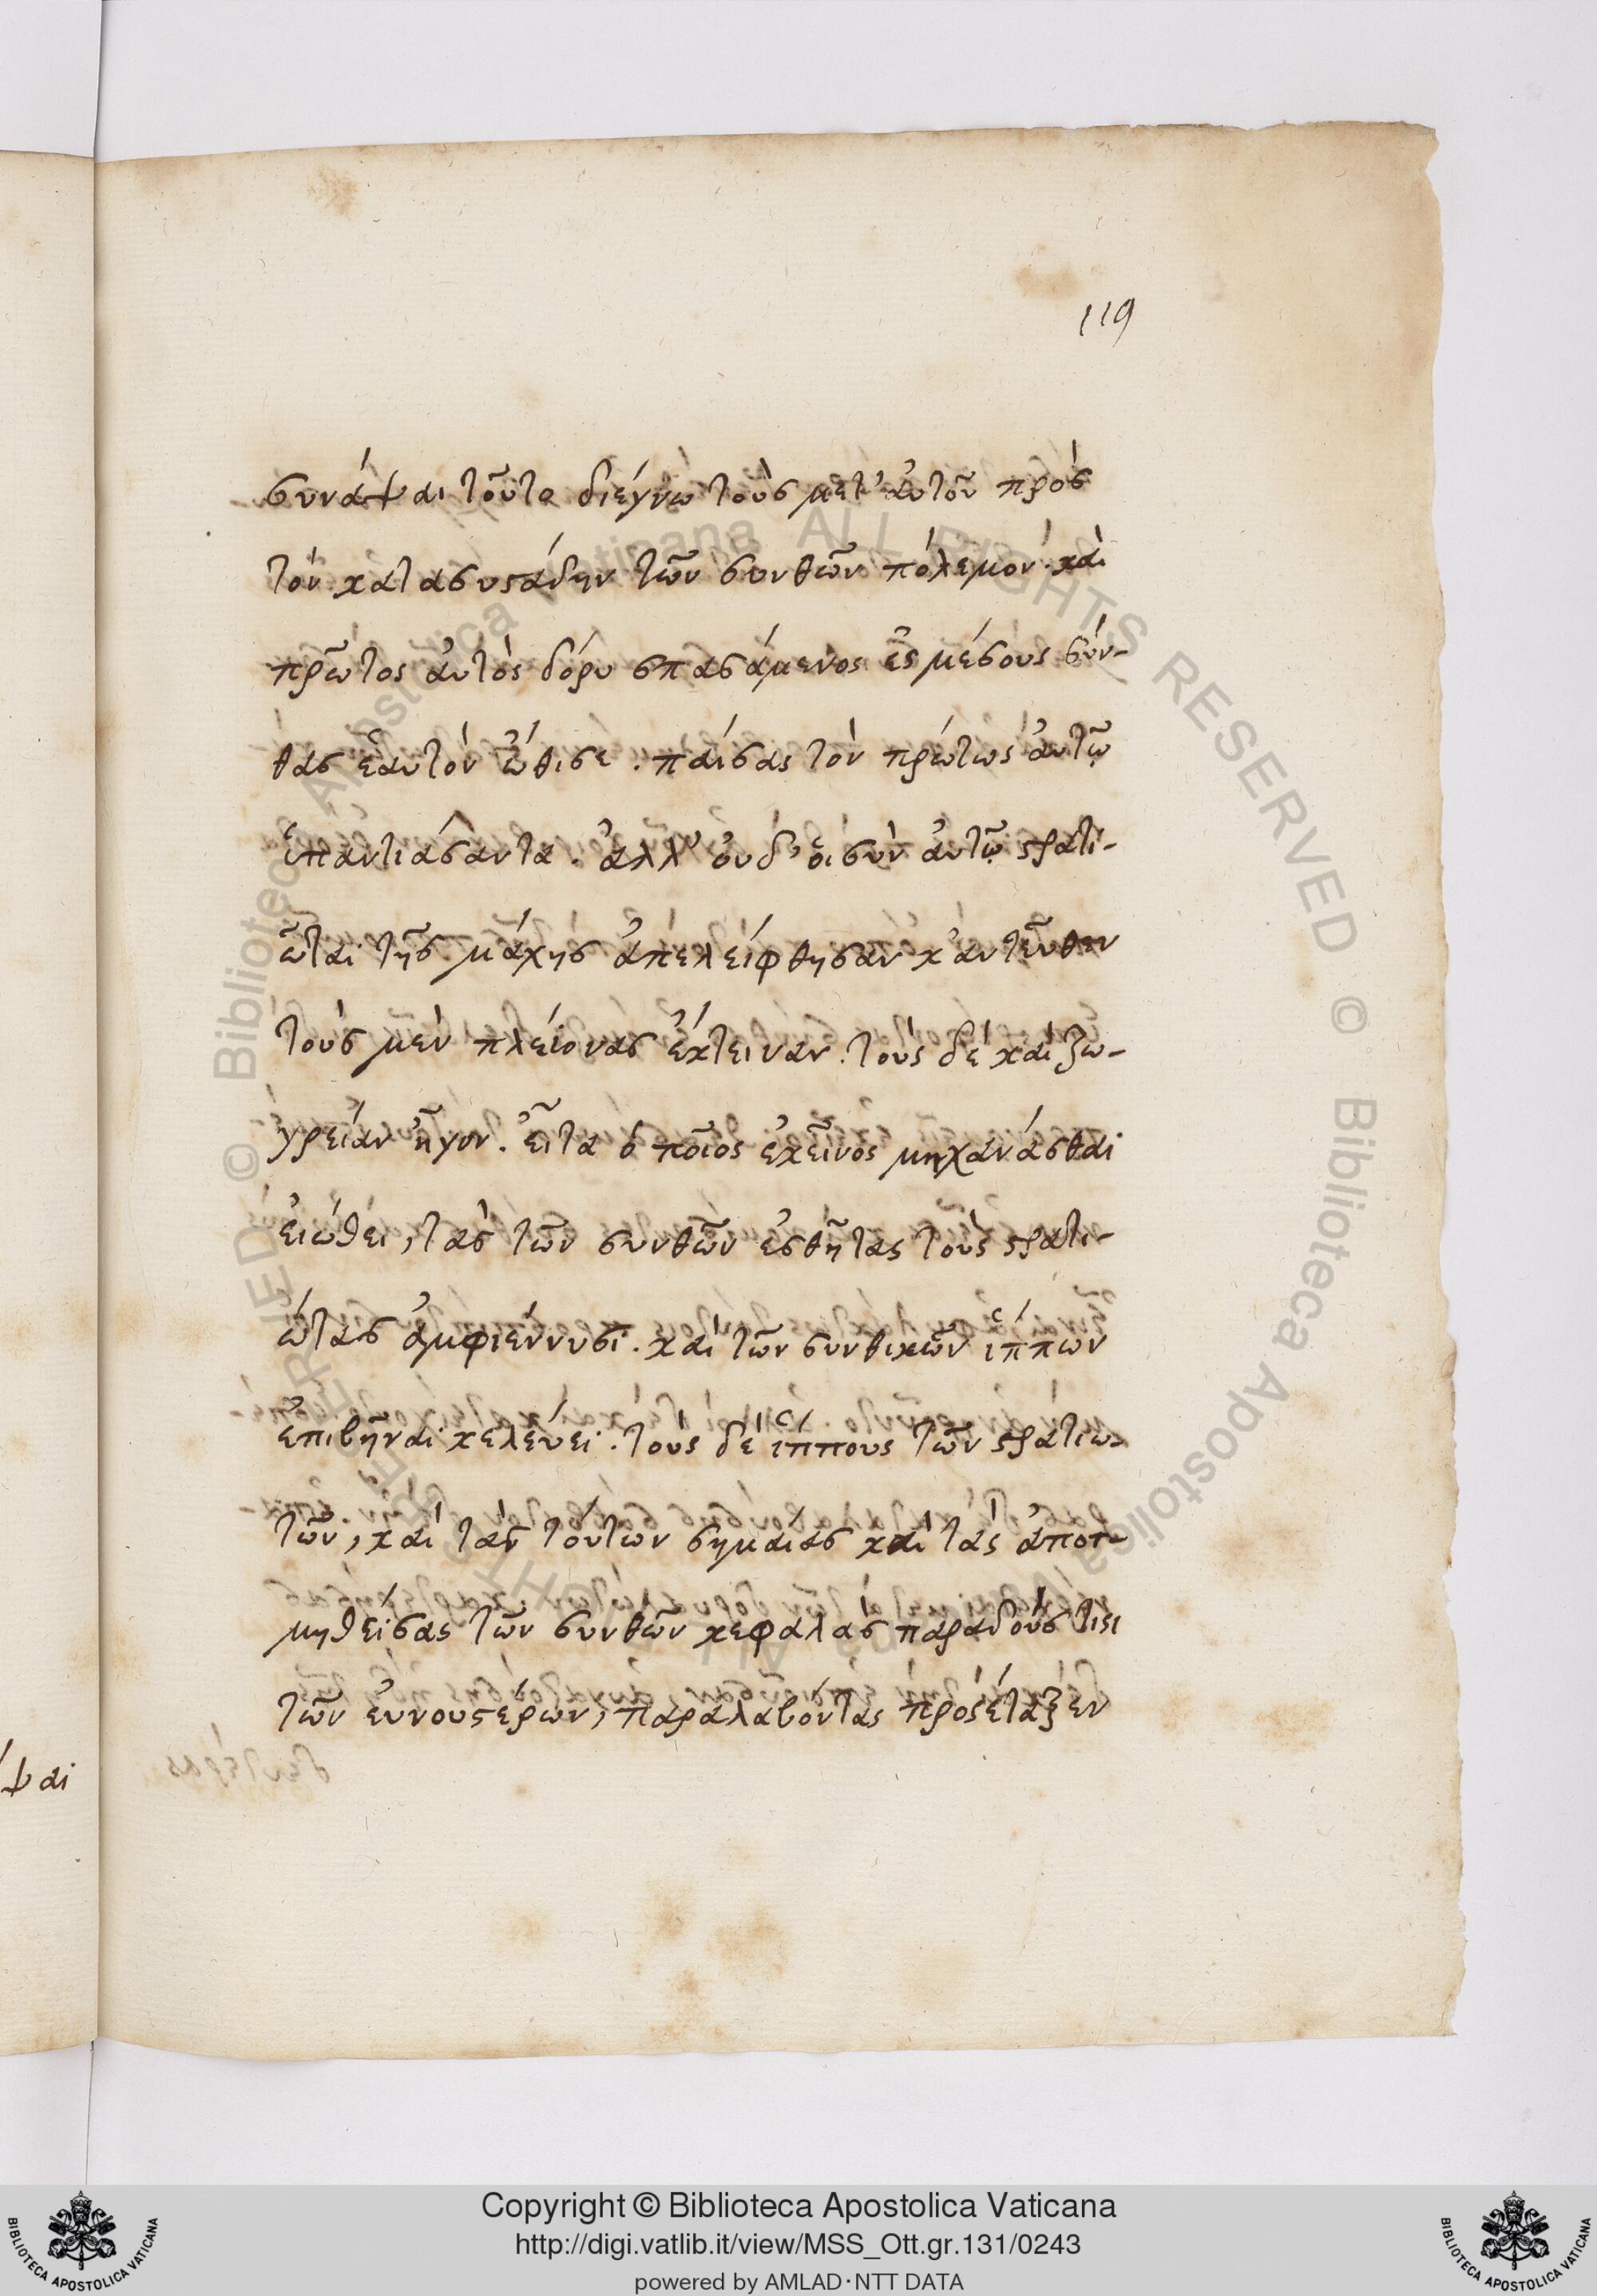 119
συνάψαι τοῦτο διέγνω τοὺς μετ' ἀυτοῦ πρὸς
τὸν κατασυστάδην τῶν σκυθῶν πόλεμον. καὶ
πρῶτος ἀυτὸς δόρυ σπασάμενος ἐς μέσους σκύ-
θας ἑαυτὸν ὤθισε. πάισας τὸν πρώτως ἀυτῷ
ὑπαντιάσαντα. ἀλλ' ὀυδ' ὁι σὺν ἀυτῷ στρατι-
ῶται τῆς μάχης ἀπελείφθησαν κἀντεῦθεν
τοὺς μὲν πλείονας ἔκτειναν. τοὺς δὲ καὶ ζω-
γρείαν ἦγον. ἶιτα ὁ ποῖος ἐκεῖνος μηχανάσθαι
ἐιώθει, τὰς τῶν σκυθῶν ἐσθῆτας τοὺς στρατι-
ώτας ἀμφιέννυσι. καὶ τῶν σκυθικῶν ἵππων
ἐπιβῆναι κελέυει. τοὺς δὲ ἵππους τῶν στρατιω-
τῶν, καὶ τὰς τούτων σημαίας καὶ τὰς ἀποτ-
μηθείσας τῶν σκυθῶν κεφαλὰς παραδοὺς τισι
τῶν ἐυνουστέρων, παραλαβόντας προσέταξεν
ψαι
Copyright © Biblioteca Apostolica Vaticana
http://digi.vatlib.it/view/MSS_Ott.gr.131/0243
powered by AMLAD·NTT DATA
BIBLIOTECA APOSTOLICA VATICANA
BIBLIOTECA APOSTOLICA VATICANA